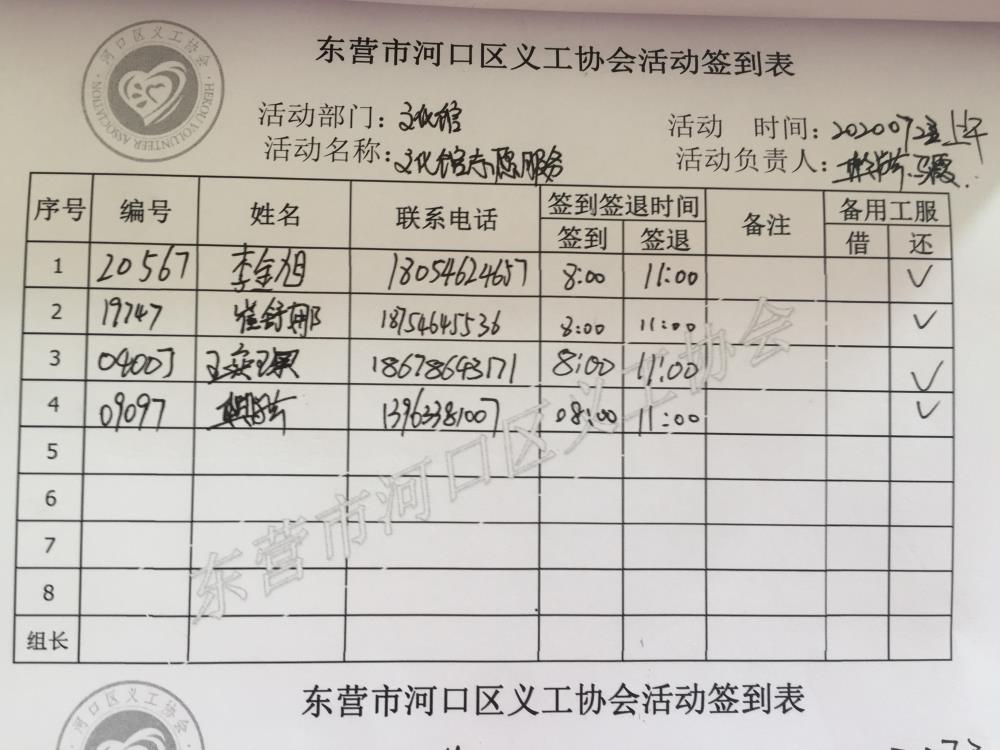 东营市河口区义工协会活动签到表
河口区义工协会
HEKOU VOLUNTEER ASSOCIATION
活动部门：文化馆
活动 时间：20200723上午
活动名称：文化馆志愿服务
活动负责人：
序号 编号 姓名 联系电话 签到签退时间 备注 备用工服
签到 签退 借 还
1 20567 李金旭 18054624657 8:00 11:00 ✓
2 19747 崔舒娜 18754645536 8:00 11:00 ✓
3 04007 王奕琪 18678643171 8:00 11:00 ✓
4 09097 13963381007 08:00 11:00 ✓
5
6
7
8
组长
东营市河口区义工协会
东营市河口区义工协会活动签到表
河口区义工协会